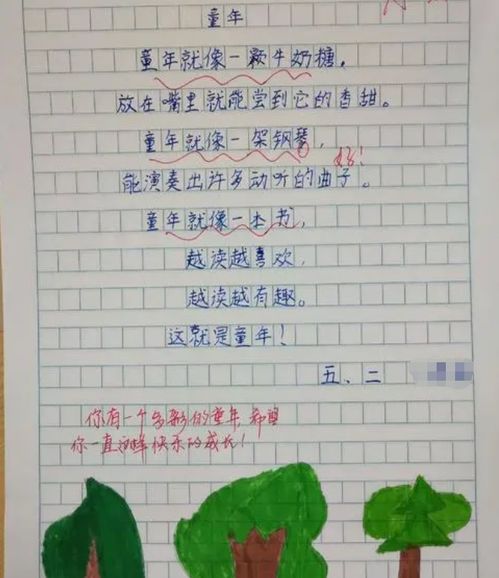 童年
童年就像一颗牛奶糖，
放在嘴里就能尝到它的香甜。
童年就像一架钢琴，
好！
能演奏出许多动听的曲子。
童年就像一本书，
越读越喜欢，
越读越有趣。
这就是童年！
五、二
你有一个多彩的童年，希望
你一直这样快乐的成长！